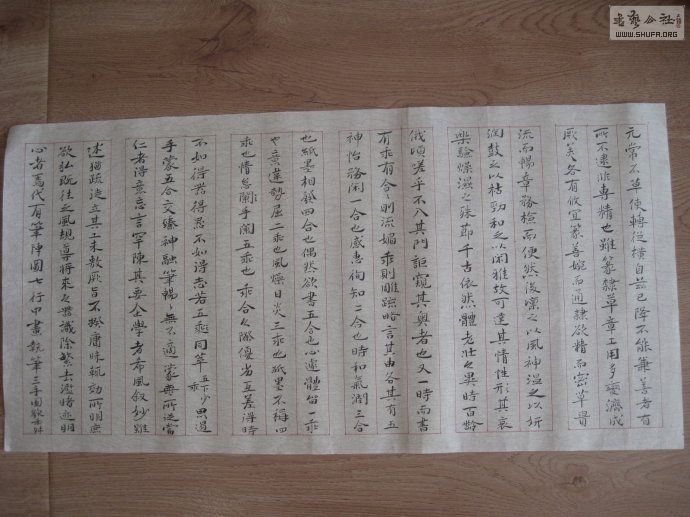 元常不草使轉從横自茲已降不能兼善者有
所不逮非專精也雖篆隸草章工用多變濟成
厥美各有攸宜篆善婉而通隸欲精而密草貴
流而暢章務檢而便然後凜之以風神溫之以妍
潤鼓之以枯勁和之以閑雅故可達其情性形其哀
樂驗燥濕之殊節千古依然體老壯之異時百齡
俄頃嗟乎不入其門詎窺其奧者也又一時而書
有乖有合合則流媚乖則雕疏略言其由各其有五
神怡務閑一合也感惠徇知二合也時和氣潤三合
也紙墨相發四合也偶然欲書五合也心遽體留一乖
也意違勢屈二乖也風燥日炎三乖也紙墨不稱四
乖也情怠手闌五乖也乖合之際優劣互差得時
不如得器得器不如得志若五乖同萃思遏
手蒙五合交臻神融筆暢暢無不適蒙無所從當
仁者得意忘言罕陳其要企學者希風叙妙雖
述猶疏徒立其工未敷厥旨不揆庸昧輒効所明庶
欲弘既往之風規導將來之器識除繁去濫睹迹明
心者焉代有筆陣圖七行中畫執筆三手圖貌乖舛
書藝公社
WWW.SHUFA.ORG